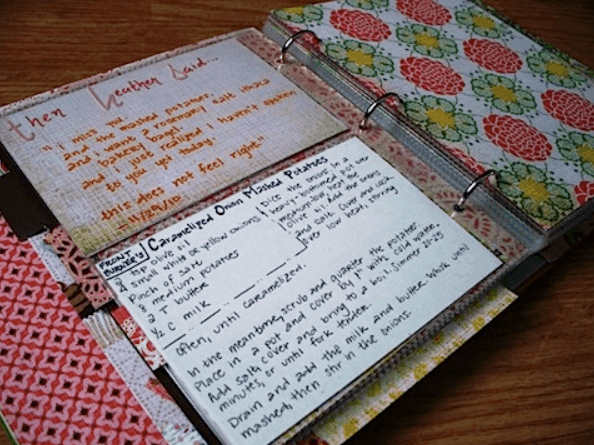 then heather said...
"i miss you.
and the mashed potatoes.
and i want a rosemary salt ithaca
bakery bagel.
and i just realized i haven't spoken
to you yet today.
this does not feel right."
-11/29/10
FRONT BURNER'S
Caramelized Onion Mashed Potatoes
olive oil
small white or yellow onions
Pinch of salt
8 medium potatoes
2 T butter
1/2 C milk
Dice the onions. In a
heavy-bottomed pot over
medium-low, heat the
olive oil. Add the onions
and salt. Cover and cook
over low heat, stirring
often, until caramelized.
In the meantime, scrub and quarter the potatoes.
Place in a pot and cover by 1" with cold water.
Add salt, cover and bring to a boil. Simmer 20-25
minutes, or until fork tender.
Drain and add the milk and butter. Whisk until
mashed, then stir in the onions.